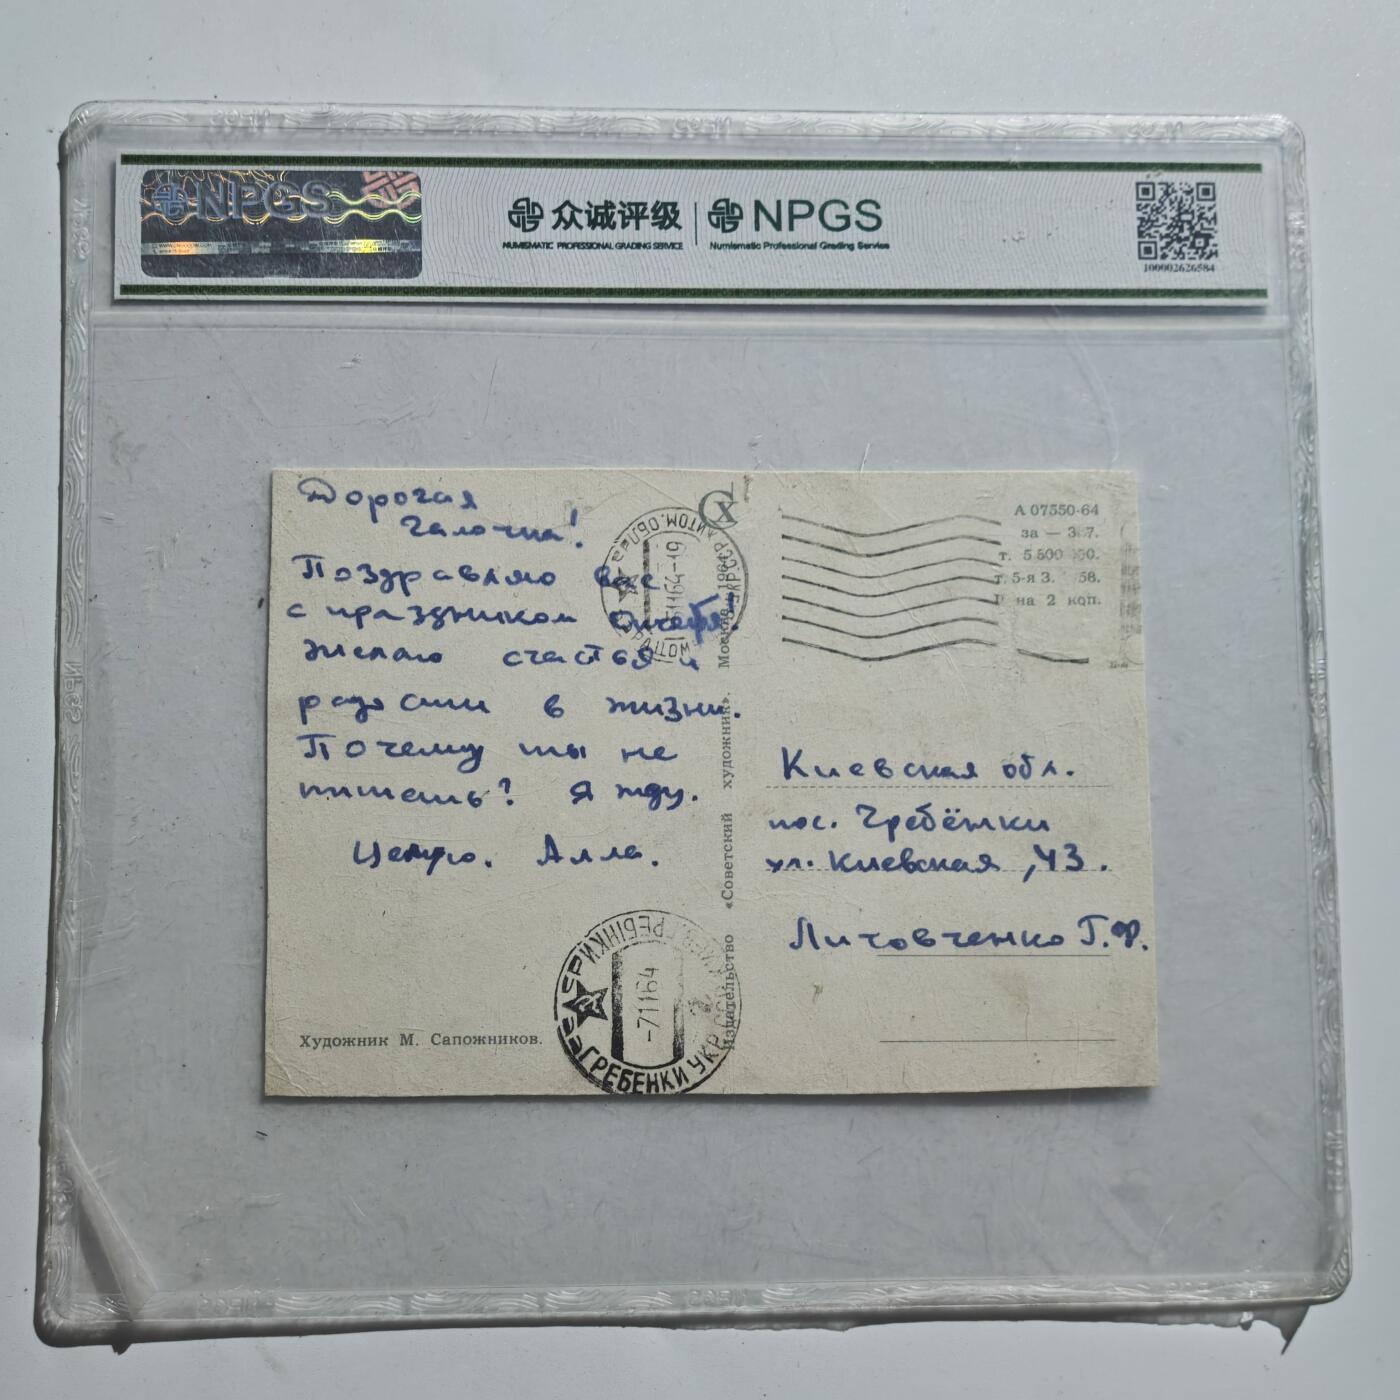 NPGS
众诚评级 NPGS
NUMISMATIC PROFESSIONAL GRADING SERVICE Numismatic Professional Grading Service
100002626584
Дорогая
Галочка!
Поздравляю вас
с праздником Октября.
Желаю счастья и
радости в жизни.
Почему ты не
пишешь? Я жду.
Целую. Алла.
Художник М. Сапожников.
Издательство «Советский художник». Москва. 1964
СХ
А 07550-64
за — 3 7.
т. 5 500 00.
т. 5-я З. 58.
на 2 коп.
УКР.ССР ЖИТОМ. ОБЛ.
1164-19
Киевская обл.
пос. Гребёнки
ул. Киевская, 43.
Личовченко Г.Ф.
ГРЕБІНКИ
-71164
ГРЕБЕНКИ УКР.ССР